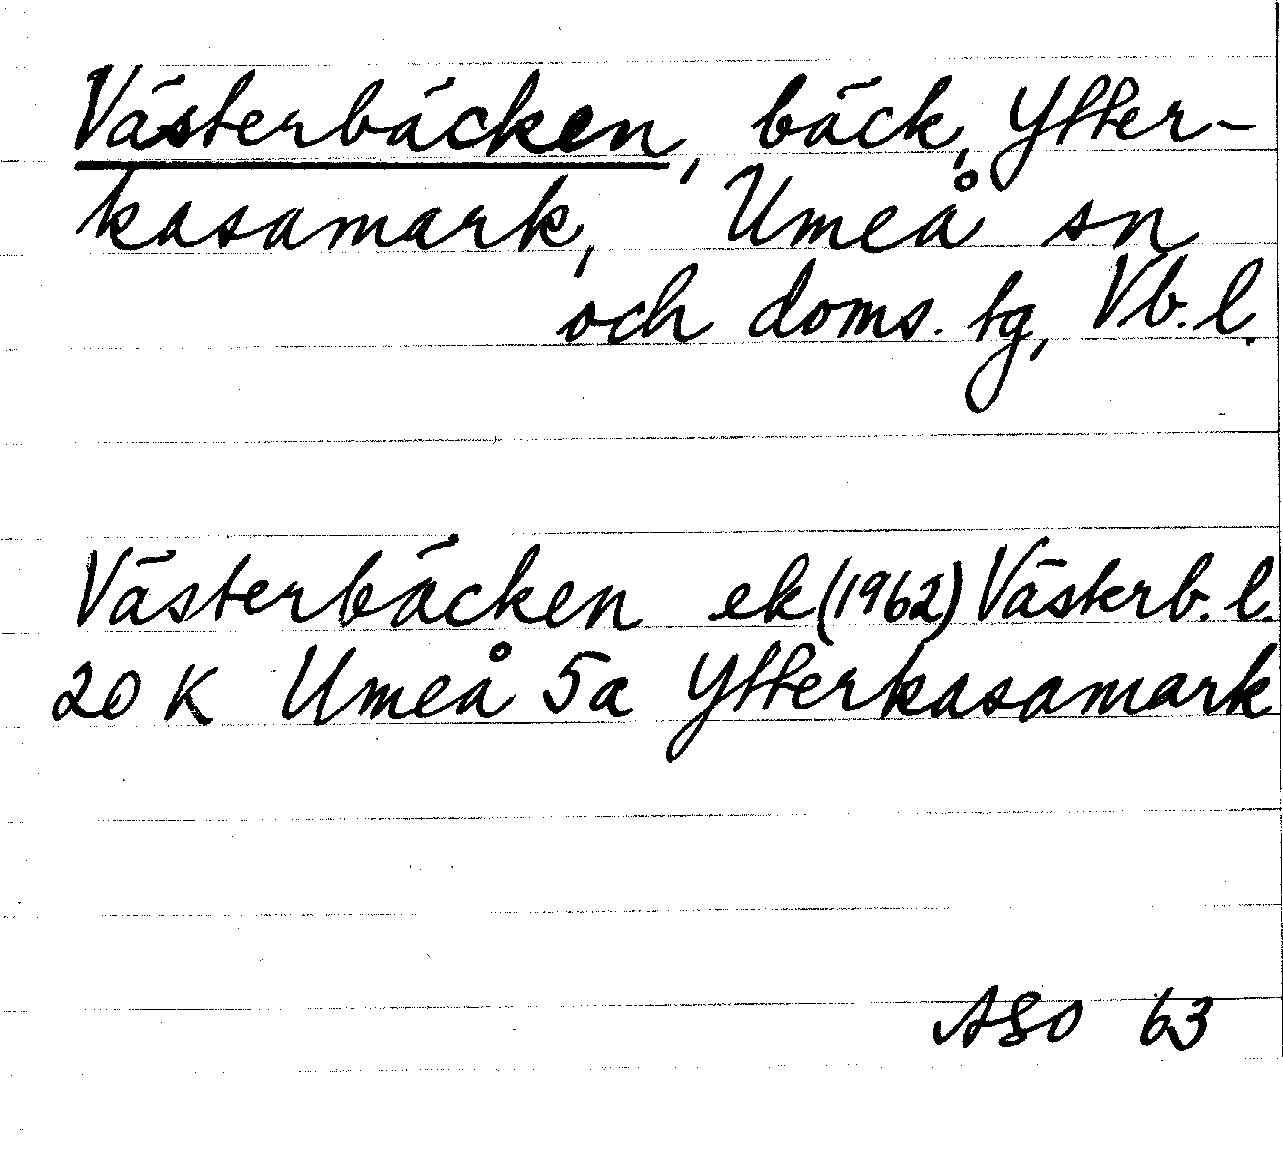 Västerbäcken, bäck, Ytter-
kasamark, Umeå sn
och doms. tg, Vb. l.
Västerbäcken ek (1962) Västerb. l.
20 K Umeå 5a Ytterkasamark
ASO 63